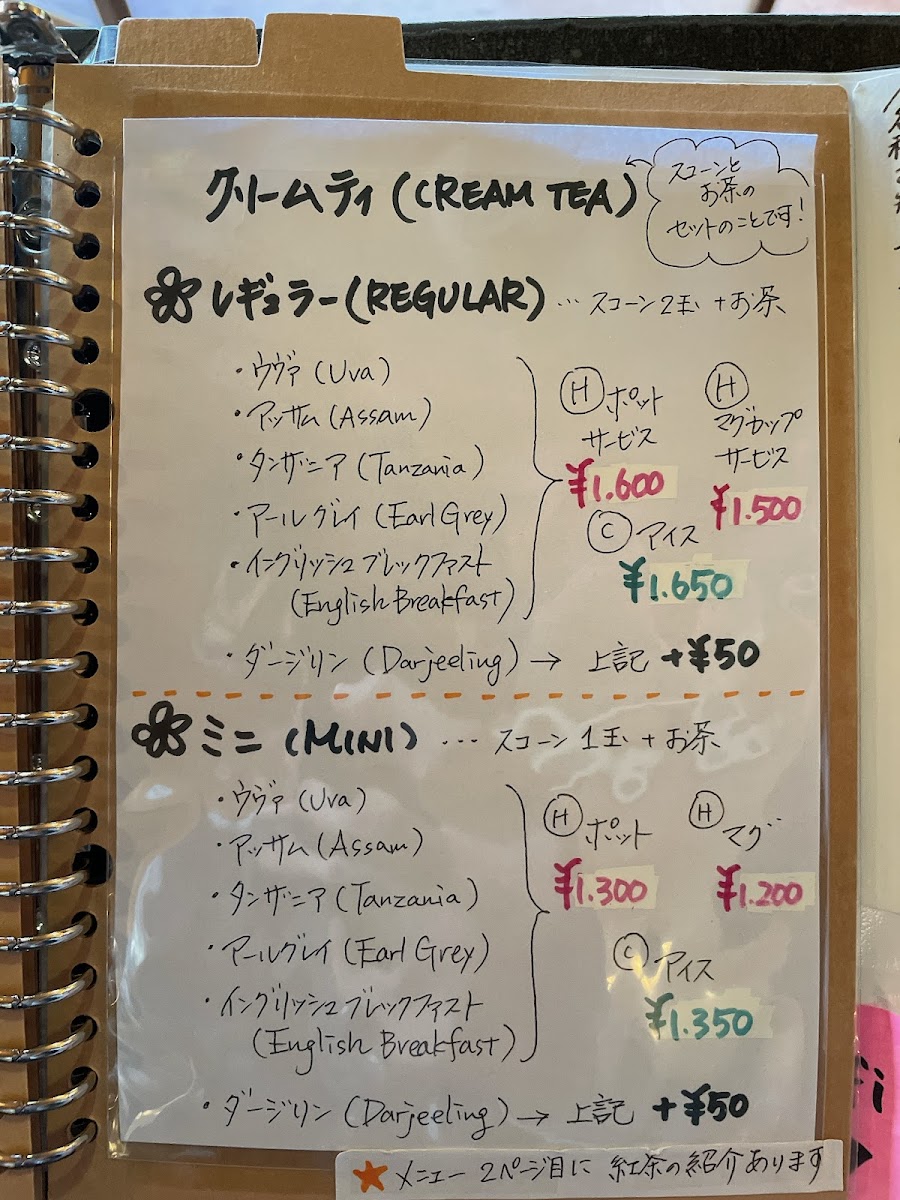 クリームティ (CREAM TEA)
スコーンと
お茶の
セットのことです!
レギュラー (REGULAR) … スコーン2玉 + お茶
・ウヴァ (Uva)
・アッサム (Assam)
・タンザニア (Tanzania)
・アールグレイ (Earl Grey)
・イングリッシュブレックファスト
(English Breakfast)
Ⓗ ポット
サービス
¥1.600
Ⓗ
マグカップ
サービス
¥1.500
Ⓒ アイス
¥1.650
・ダージリン (Darjeeling) → 上記 +¥50
ミニ (MINI) … スコーン1玉 + お茶
・ウヴァ (Uva)
・アッサム (Assam)
・タンザニア (Tanzania)
・アールグレイ (Earl Grey)
・イングリッシュブレックファスト
(English Breakfast)
Ⓗ ポット
¥1.300
Ⓗ マグ
¥1.200
Ⓒ アイス
¥1.350
・ダージリン (Darjeeling) → 上記 +¥50
★ メニュー 2ページ目に 紅茶の紹介あります